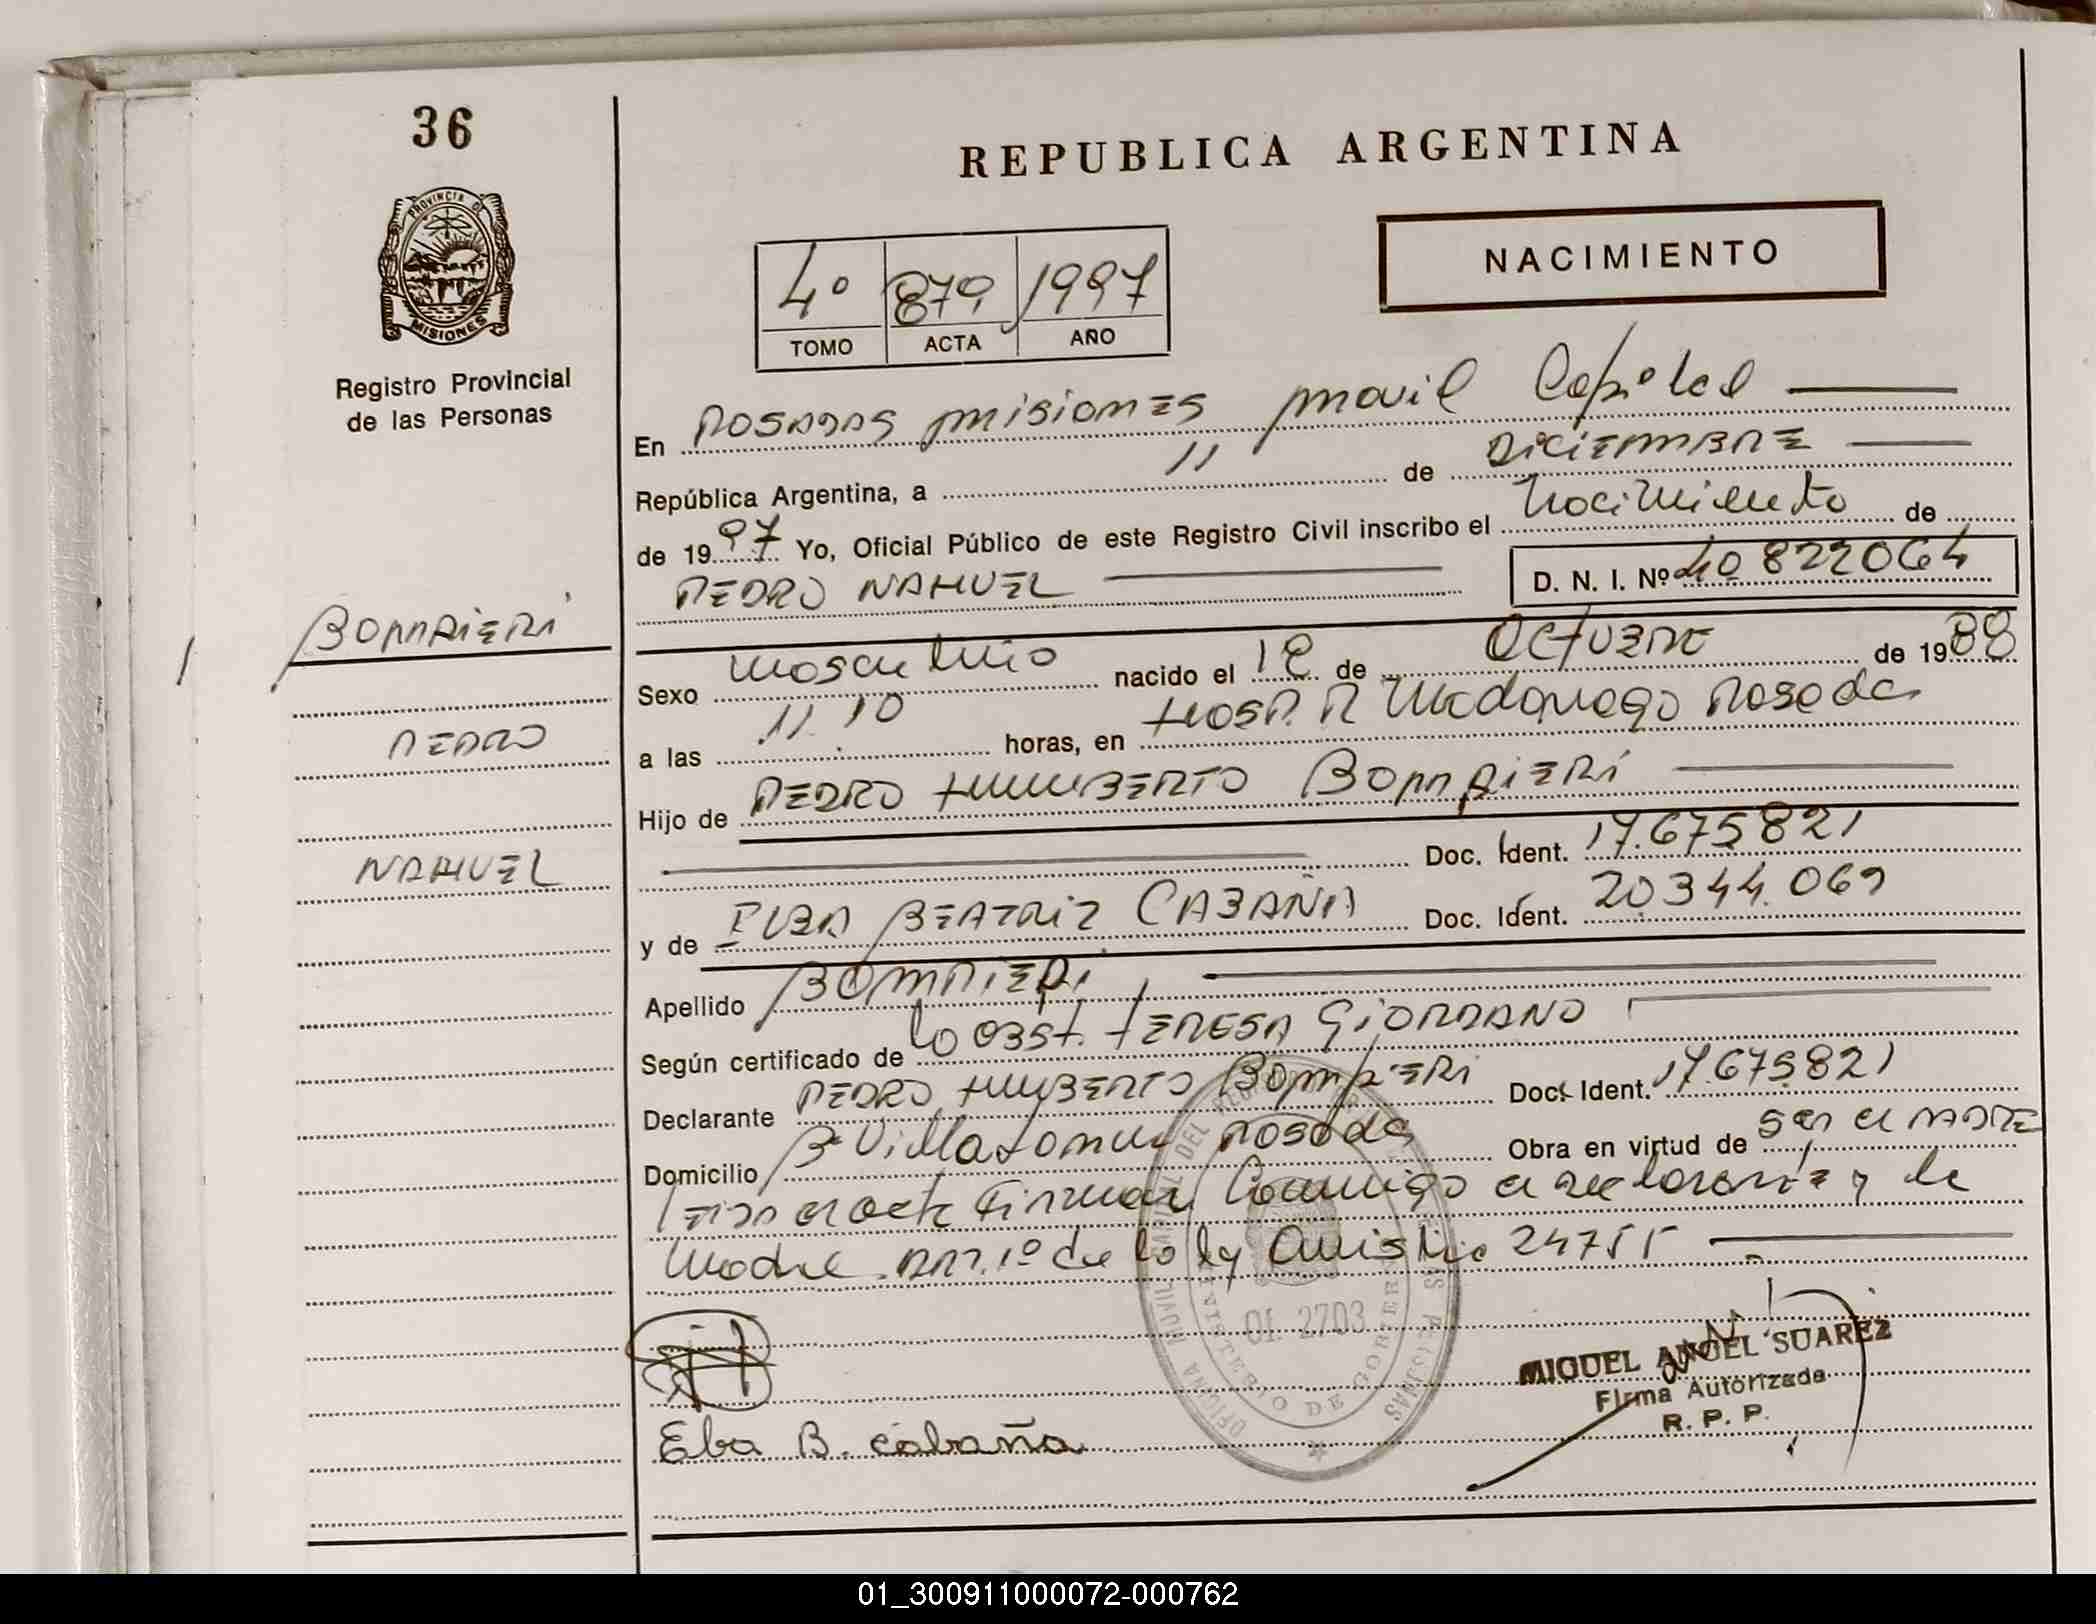 36
REPUBLICA ARGENTINA
PROVINCIA DE
MISIONES
Registro Provincial
de las Personas
4º 879 1997
TOMO ACTA AÑO
NACIMIENTO
En POSADAS MISIONES Movil Capital
República Argentina, a 11 de DICIEMBRE
de 1997 Yo, Oficial Público de este Registro Civil inscribo el Nacimiento de
PEDRO NAHUEL D. N. I. Nº 40822064
BOMPAIERI
PEDRO
NAHUEL
Sexo Masculino nacido el de OCTUBRE de 19
a las 11.10 horas, en HOSP. R Madariaga Posadas
Hijo de PEDRO HUMBERTO BOMPAIERI
Doc. Ident. 17.675821
y de ELBA BEATRIZ CABAÑA Doc. Ident. 20.344.069
Apellido BOMPAIERI
Según certificado de la OBST. TERESA GIORDANO
Declarante PEDRO HUMBERTO Doc. Ident. 17.675821
Domicilio Bº Posadas Obra en virtud de ser el PADRE
Leida el acta Firman Conmigo el declarante y la
Madre. de la ley 24755
OFICINA MOVIL
MINISTERIO DE GOBIERNO
01 2703
MIGUEL ANGEL SUAREZ
Firma Autorizada
R. P. P.
Elba B. cabaña
01_300911000072-000762